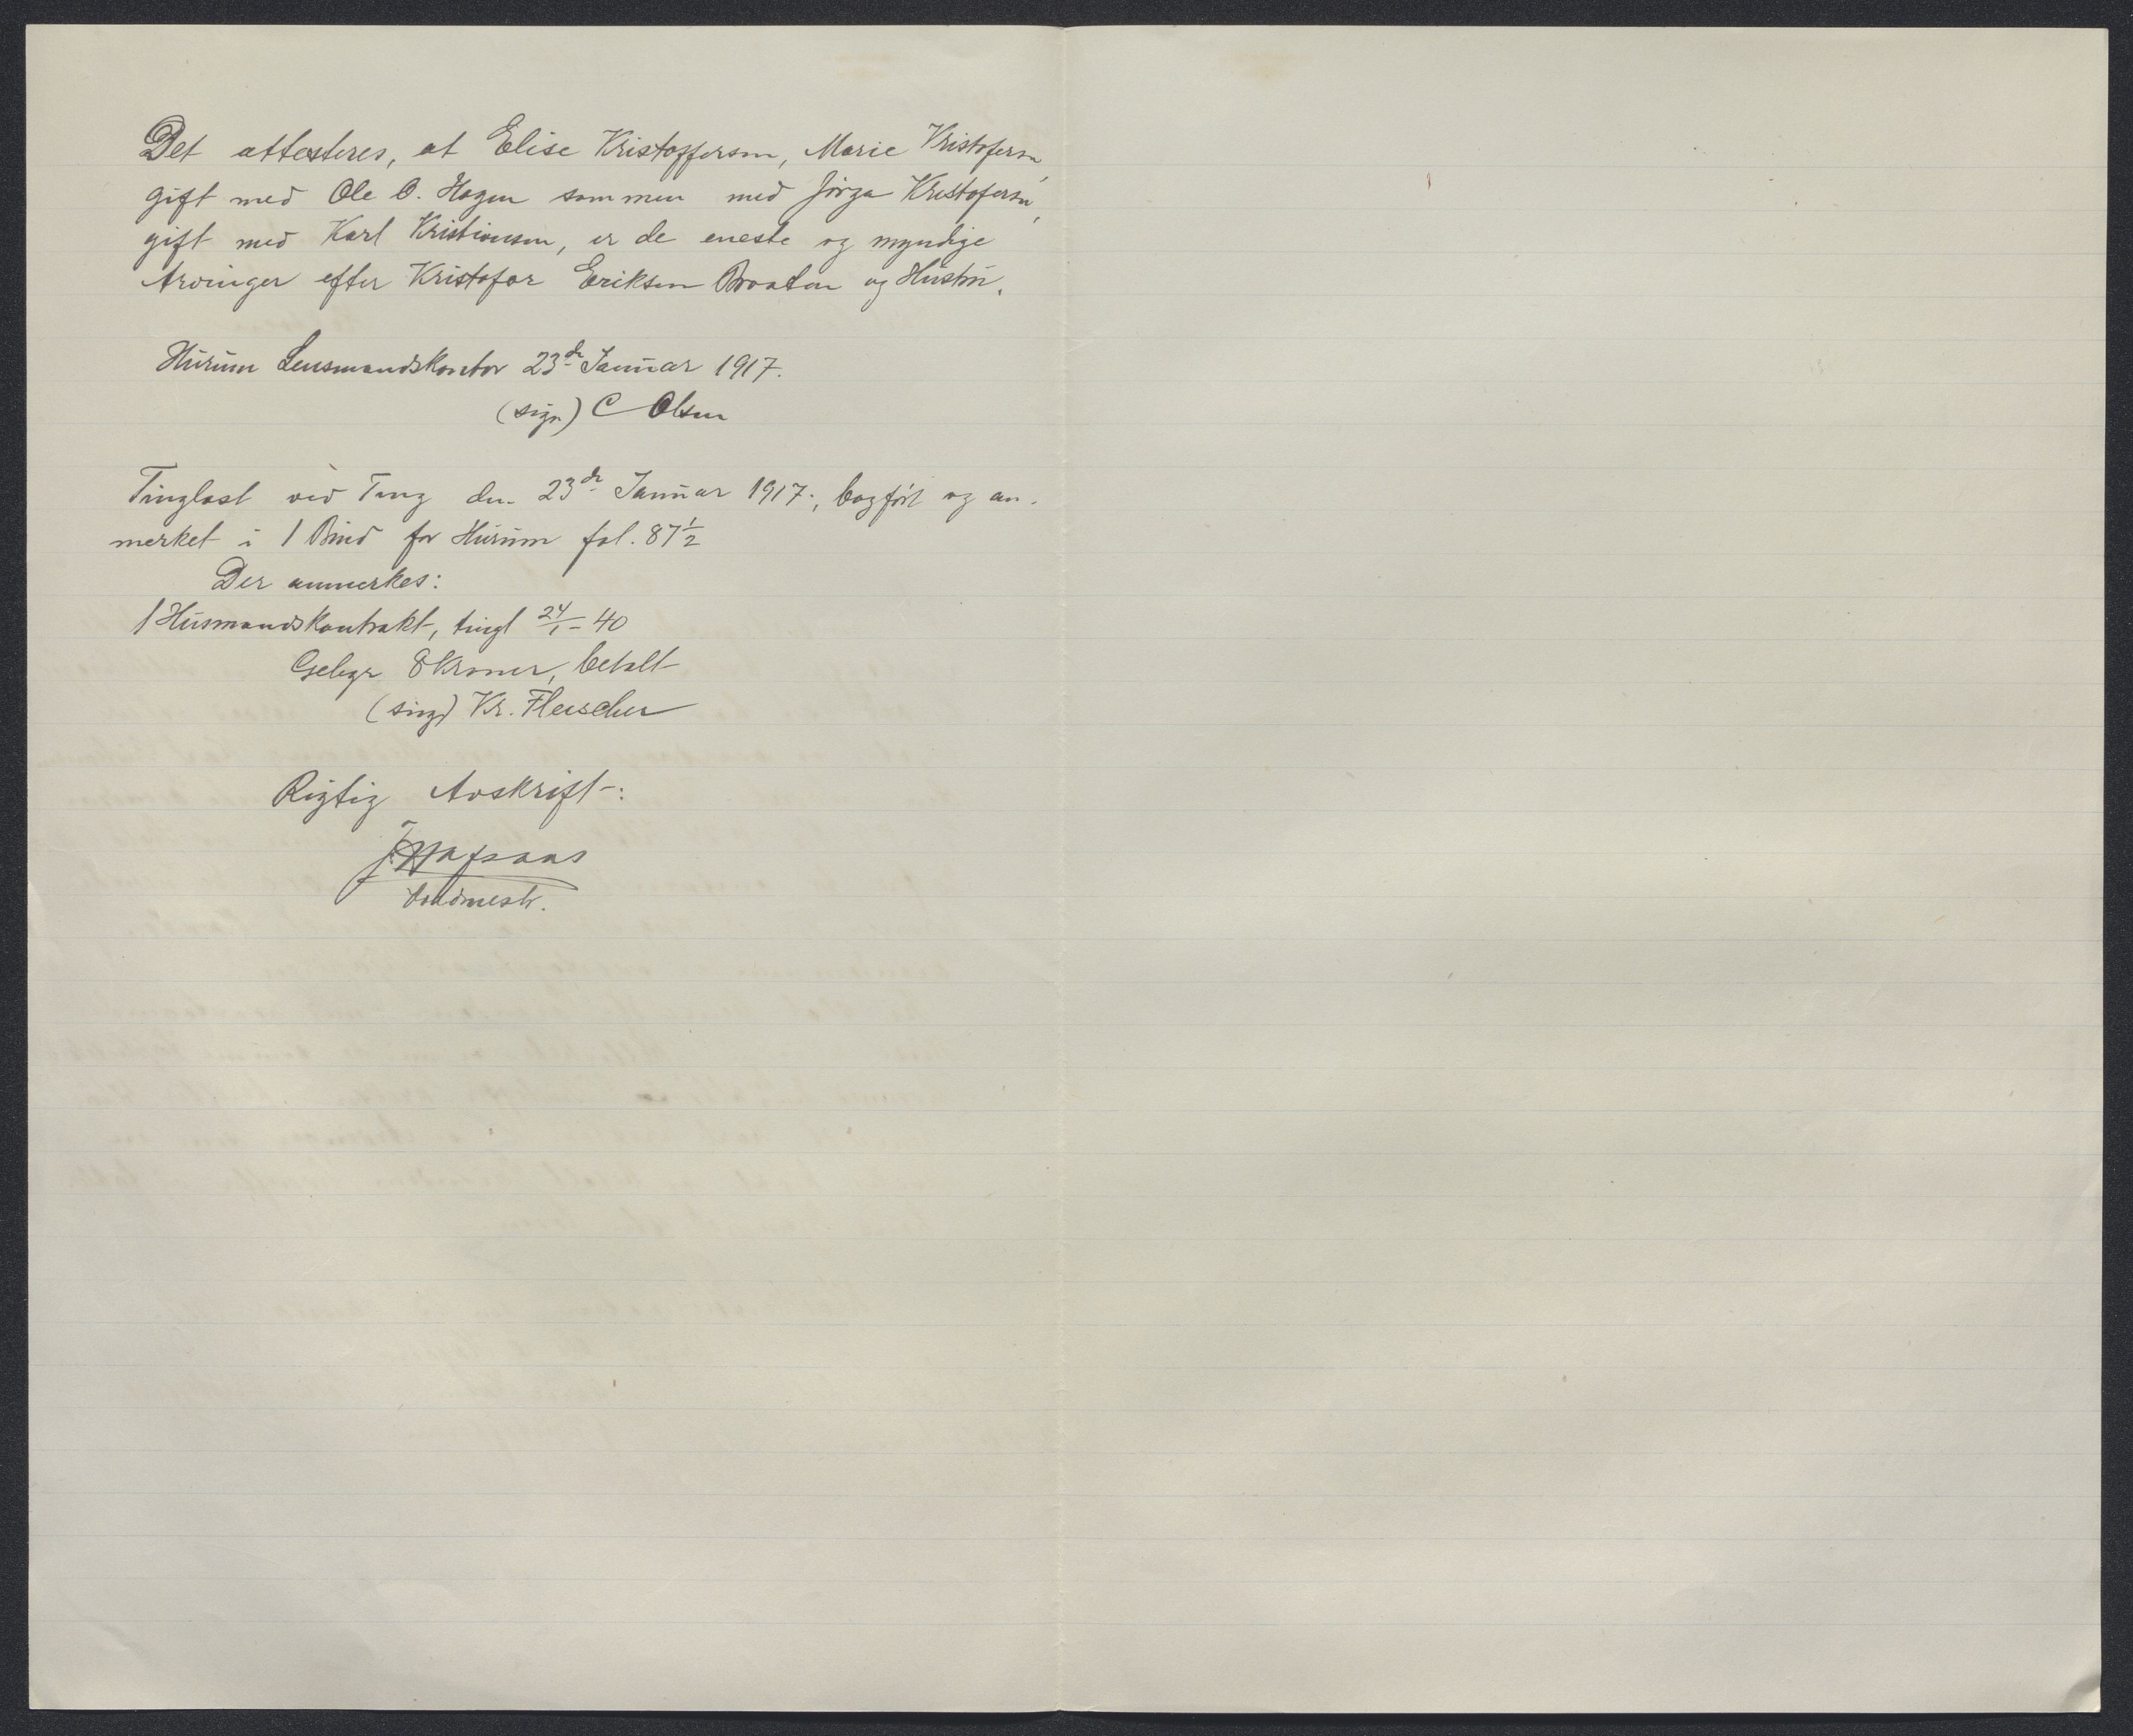 Det attesteres, at Elise Kristoffersen, Marie Kristofersn,
gift med Ole O. Hagen sammen med Jörga Kristofersn,
gift med Karl Kristiansen, er de eneste og myndige
Arvinger efter Kristofer Eriksen Braaten og Hustru.
Hurum Lensmandskontor 23de Januar 1917.
(sign) C Olsen
Tinglæst ved Ting den 23de Januar 1917., bogført og an-
merket i 1 Bind for Hurum fol. 87½
Der anmerkes:
1 Husmandskontrakt, tingl 24/1-40
Gebyr 8 Kroner, betalt
(sing) Kr. Fleischer
Rigtig Avskrift: